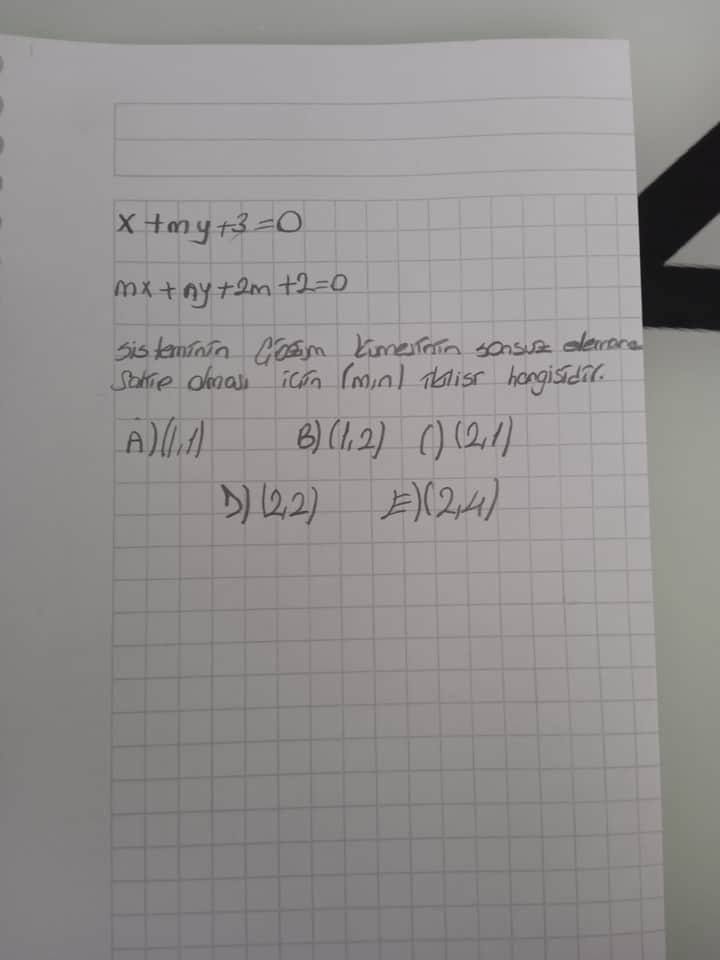 x+my+3=0
mx+ny+2m+2=0
sisteminin Çözüm kümesinin sonsuz elemana
Sahip olması için (m,n) ikilisi hangisidir.
A)(1,1) B)(1,2) C)(2,1)
D)(2,2) E)(2,4)